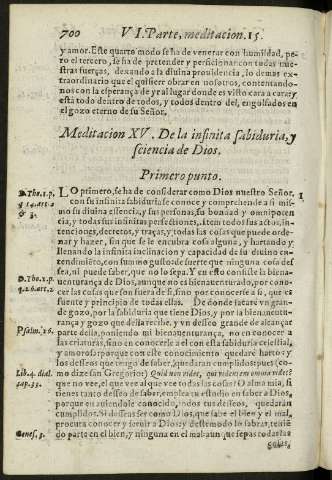 700 VI. Parte, meditacion. 15.
y amor. Este quarto modo se ha de venerar con humildad, pe-
ro el tercero, se ha de pretender y persicionar con todas nues-
tras fuerças, dexando a la diuina prouidencia, lo demas ex-
traordinario que el quisiere obrar en nosotros, contentando-
nos con la esperança de yr al lugar donde es visto cara a cara; y
està todo dentro de todos, y todos dentro del, engolfados en
el gozo eterno de su Señor.
Meditacion XV. De la infinita sabiduria, y
sciencia de Dios.
Primero punto.
D. Tho. 1. p.
q 14. art. 2
& 3.
LO primero, se ha de considerar como Dios nuestro Señor, 1
con su infinita sabiduria se conoce y comprehende a si mis-
mo su diuina essencia, y sus personas, su bondad y omnipoten
cia, y todas sus infinitas perfecciones, item todos sus actos, in-
tenciones, decretos, y traças, y todas las cosas que puede orde-
nar y hazer, sin que se le encubra cosa alguna, y hartando y
llenando la infinita inclinacion y capacidad de su diuino en-
tendimiento, con sumo gusto de suerte que ninguna cosa de-
sea, ni puede saber, que no lo sepa. Y en esto consiste la biena-
D. Tho. 1. p.
q. 26. art. 2
uenturança de Dios, aunque no es bienauenturado, por cono-
cer las cosas que son fuera de si, sino por conocerse a si, que es
fuente y principio de todas ellas. De donde sacarè vn gran-
de gozo, por la sabiduria que tiene Dios, y por la bienauentu-
rança y gozo que della recibe. y vn desseo grande de alcançar
Psalm. 16.
parte della, poniendo mi bienauenturança, no en conocer a
las criaturas, sino en conocerle a el con esta sabiduria celestial,
y amorosa: porque con este conocimiento quedarè harto: y
los desseos que tengo de saber, quedaran cumplidos: pues (co-
Lib. 4. dial.
cap. 33.
mo dize san Gregorio) Quid non videt, qui videntem omnia videt?
que no vee, el que vee al que vee todas las cosas? O alma mia, si
tienes tanto desseo de saber, emplea tu estudio en saber a Dios,
porque en auiendole conocido, todos tus desseos, quedaràn
cumplidos. Si desseas ser como Dios, que sabe el bien y el mal,
procura conocer y seruir a Dios: y desse modo lo sabras, tenien
Genes. 3.
do parte en el bien, y ninguna en el mal: aun que sepas todas las
cosas,